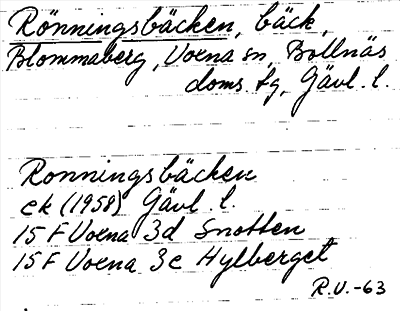 Rönningsbäcken, bäck,
Blommaberg, Voxna sn, Bollnäs
doms. fg, Gävl. l.
Ronningsbäcken
ek (1958) Gävl. l.
15 F Voxna 3d Snotten
15 F Voxna 3e Hylberget
R.U.-63